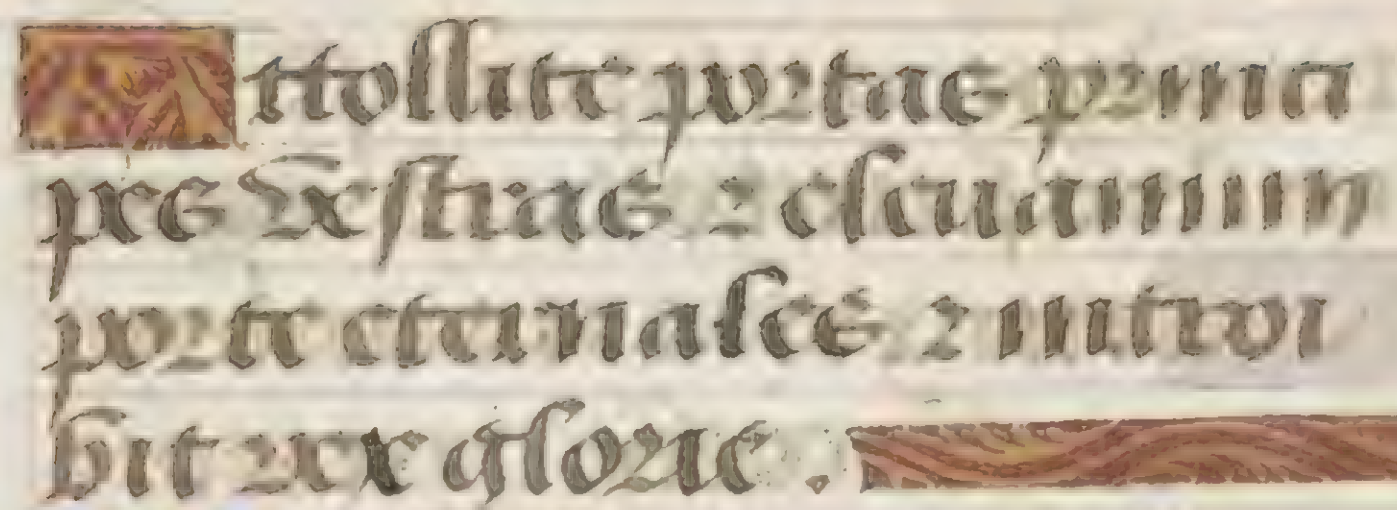 Attollite portas princi
pes vestras ⁊ elevamini
porte eternales ⁊ introi
bit rex glorie .